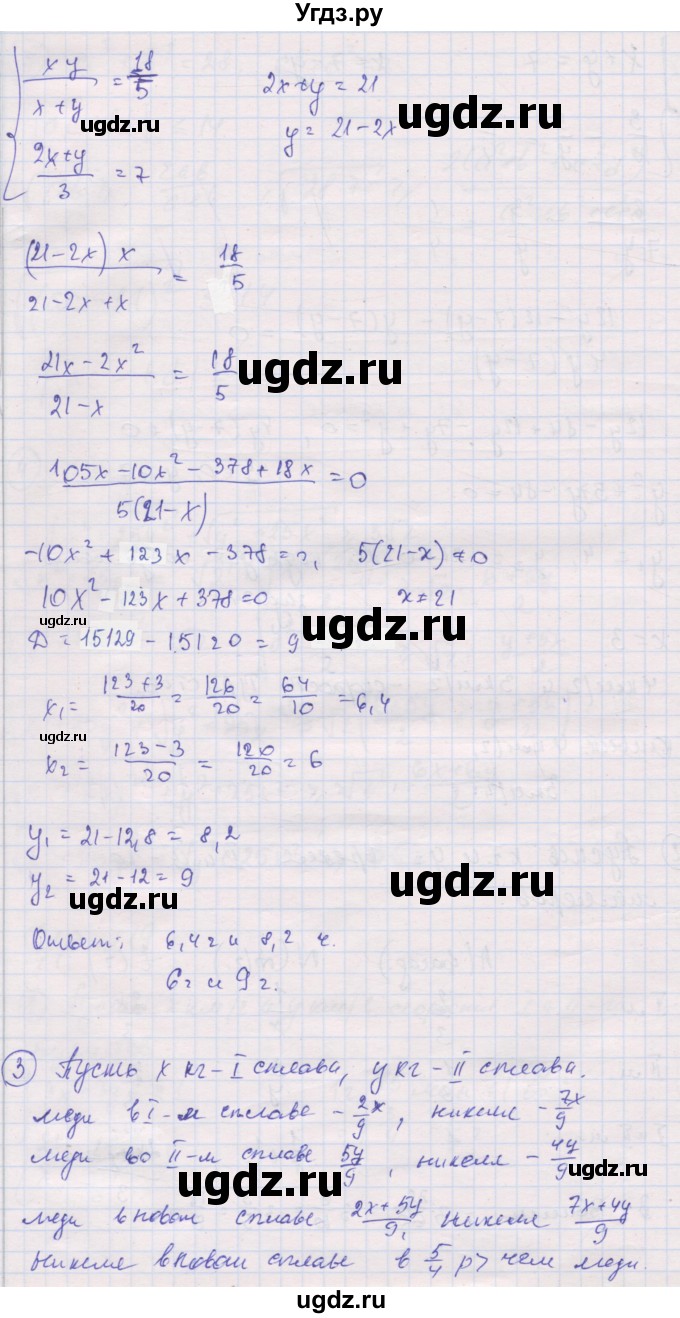 Угдз.ру
xy / (x+y) = 18/5    2x+y = 21
ugdz.ru ugdz.ru
(2x+y)/3 = 7    y = 21-2x
(21-2x) x / (21-2x+x) = 18/5
(21x-2x²)/(21-x) = 18/5
ugdz.ru
(105x-10x²-378+18x)/(5(21-x)) = 0
-10x²+123x-378=0,    5(21-x)≠0
10x²-123x+378=0    x≠21
ugdz.ru ugdz.ru
D = 15129-15120 = 9
x₁= (123+3)/20 = 126/20 = 64/10 = 6,4
ugdz.ru
x₂ = (123-3)/20 = 120/20 = 6
y₁ = 21-12,8 = 8,2
y₂ = 21-12 = 9
ugdz.ru ugdz.ru
Ответ: 6,4 ч и 8,2 ч.
6ч и 9ч.
③ Пусть x кг - I сплава, y кг - II сплава.
меди в I-м сплаве - 2x/9, никеля - 7x/9
меди во II-м сплаве 5y/9, никеля - 4y/9
ugdz.ru ugdz.ru
меди в новом сплаве (2x+5y)/9, никеля (7x+4y)/9
никеля в новом сплаве в 5/4 р > чем меди.
ugdz.ru